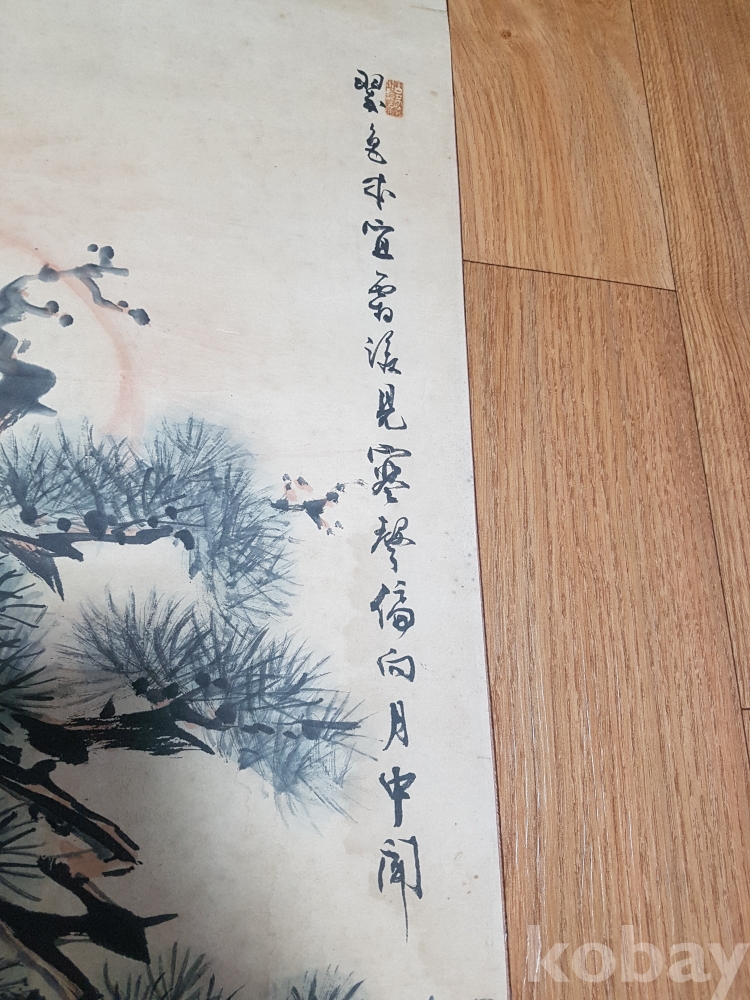 翠色本宜霜後見寒聲偏向月中聞
kobay